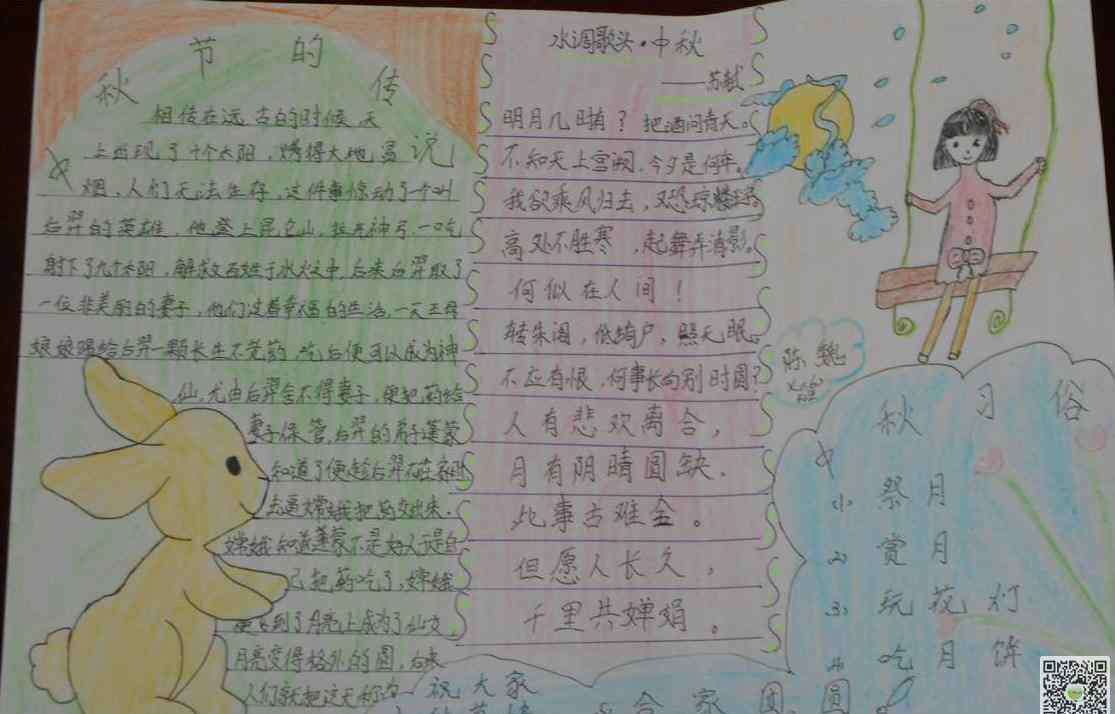 中秋节的传说
相传在远古的时候,天
上出现了十个太阳,烤得大地冒
烟,人们无法生存,这件事惊动了一个叫
后羿的英雄,他登上昆仑山,拉开神弓,一口气
射下了九个太阳,解救了百姓于水火之中,后来后羿取了
一位非美丽的妻子,他们过着幸福的生活,一天王母
娘娘赐给后羿一颗长生不死药,吃后便可以成为神
仙,尤由后羿舍不得妻子,便把药给
妻子保管,后羿的弟子蓬蒙
知道了便趁后羿不在家时
去逼嫦娥把药交出来,
嫦娥知道蓬蒙不是好人于是自
己把药吃了,嫦娥
便飞到了月亮上成为了仙女,
月亮变得格外的圆,后来
人们就把这天称为
水调歌头·中秋
——苏轼
明月几时有?把酒问青天。
不知天上宫阙,今夕是何年。
我欲乘风归去,又恐琼楼玉宇。
高处不胜寒,起舞弄清影。
何似在人间!
转朱阁,低绮户,照无眠。
不应有恨,何事长向别时圆?
人有悲欢离合,
月有阴晴圆缺.
此事古难全。
但愿人长久,
千里共婵娟。
陈魏
中秋习俗
1、祭月
2、赏月
3、玩花灯
4、吃月饼
祝大家
合家团圆